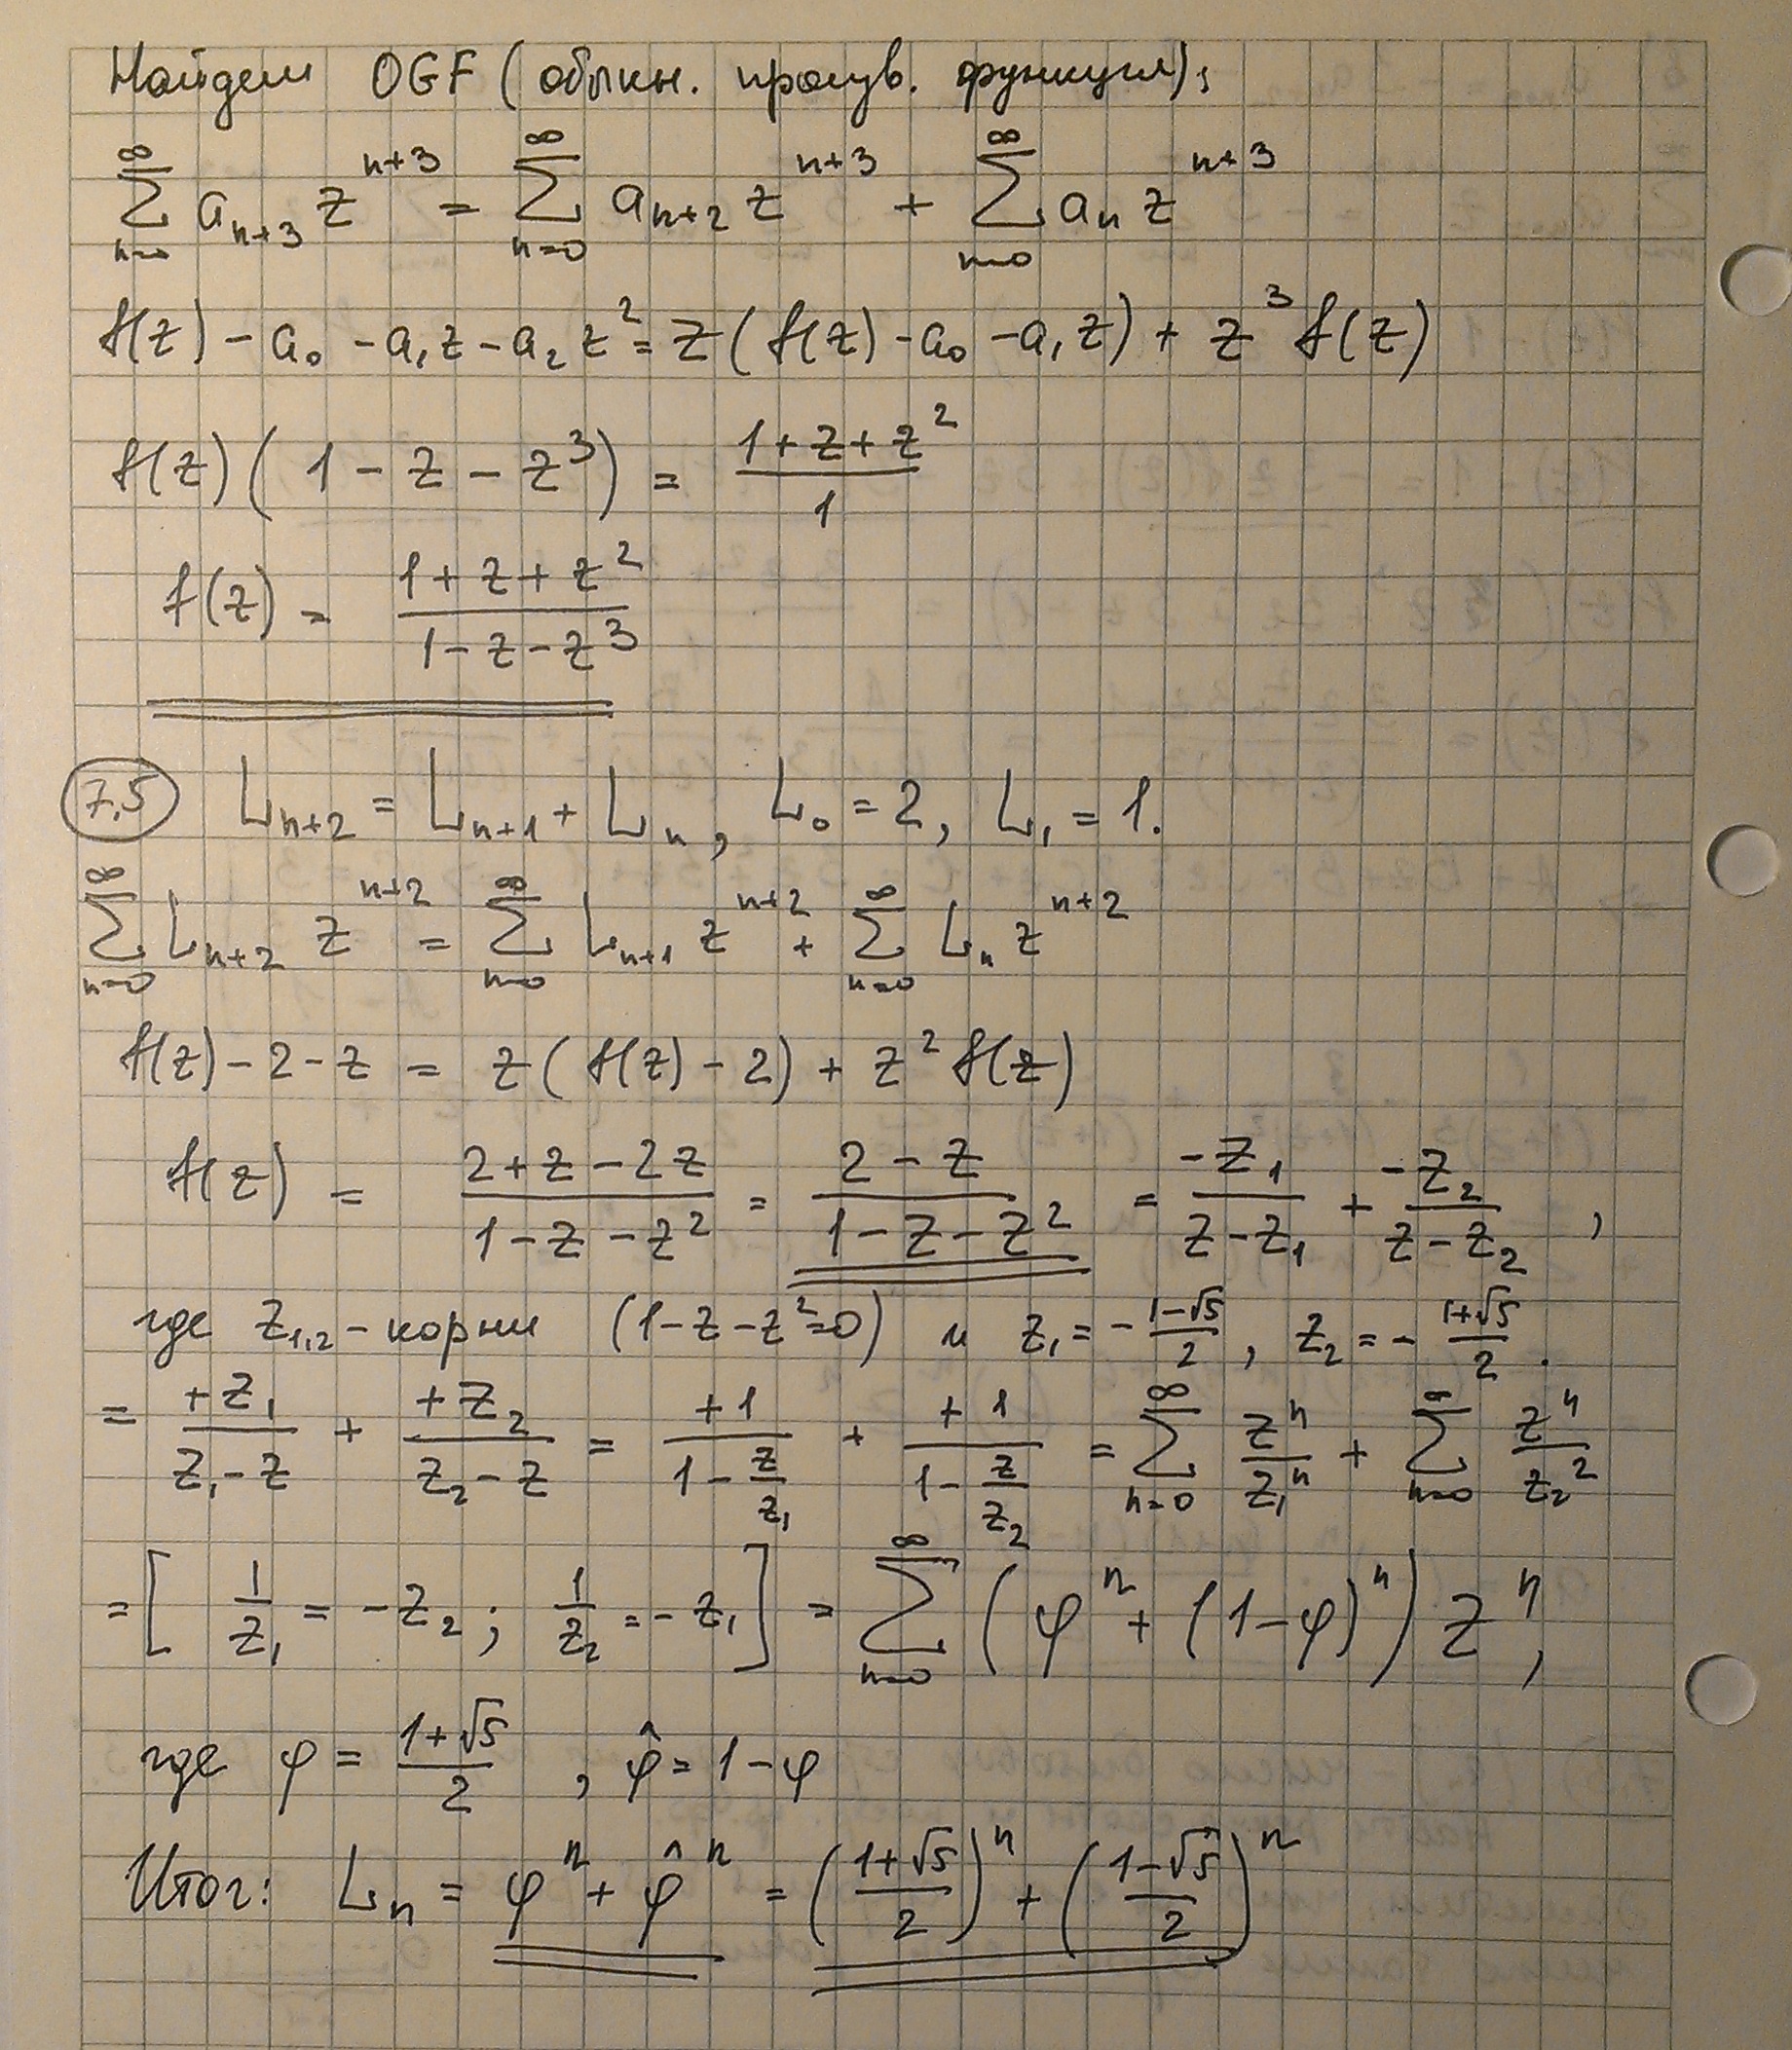 Найдем OGF (обыкн. произв. функция):
∑_{n=0}^{∞} a_{n+3} z^{n+3} = ∑_{n=0}^{∞} a_{n+2} z^{n+3} + ∑_{n=0}^{∞} a_n z^{n+3}
f(z) - a_0 - a_1 z - a_2 z^2 = z(f(z) - a_0 - a_1 z) + z^3 f(z)
f(z)(1 - z - z^3) = \frac{1+z+z^2}{1}
f(z) = \frac{1+z+z^2}{1-z-z^3}
7.5 L_{n+2} = L_{n+1} + L_n, L_0 = 2, L_1 = 1.
∑_{n=0}^{∞} L_{n+2} z^{n+2} = ∑_{n=0}^{∞} L_{n+1} z^{n+2} + ∑_{n=0}^{∞} L_n z^{n+2}
f(z) - 2 - z = z(f(z) - 2) + z^2 f(z)
f(z) = \frac{2+z-2z}{1-z-z^2} = \frac{2-z}{1-z-z^2} = \frac{-z_1}{z-z_1} + \frac{-z_2}{z-z_2},
где z_{1,2} - корни (1-z-z^2=0) и z_1 = -\frac{1-√5}{2}, z_2 = -\frac{1+√5}{2}.
= \frac{+z_1}{z_1-z} + \frac{+z_2}{z_2-z} = \frac{+1}{1-\frac{z}{z_1}} + \frac{+1}{1-\frac{z}{z_2}} = ∑_{n=0}^{∞} \frac{z^n}{z_1^n} + ∑_{n=0}^{∞} \frac{z^n}{z_2^2}
= [\frac{1}{z_1} = -z_2; \frac{1}{z_2} = -z_1] = ∑_{n=0}^{∞} (φ^n + (1-φ)^n) z^n,
где φ = \frac{1+√5}{2}, \hat{φ} = 1-φ
Итог: L_n = φ^n + \hat{φ}^n = (\frac{1+√5}{2})^n + (\frac{1-√5}{2})^n